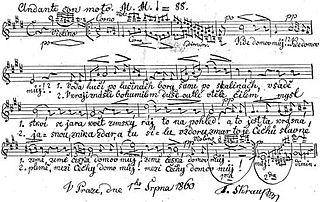 Andante con moto. M. M. = 88.
Violino Corno
po pp
Kde domov můj? Kde domov
můj? 1. Voda hučí po lučinách, bory šumí po skalinách, v sadě
2. V kraji znáš-li Bohumilém duše outlé v těle čilém, mysl
1. skví se jara květ, zemský ráj to na pohled! a to jest ta krásná
2. jasnou, znik a zdar a tu sílu vzdoru zmar: to je Čechů slavné
1. země, země česká domov můj, země česká domov můj!
2. plémě, mezi Čechy domov můj, mezi Čechy domov můj!
V Praze, dne Srpna